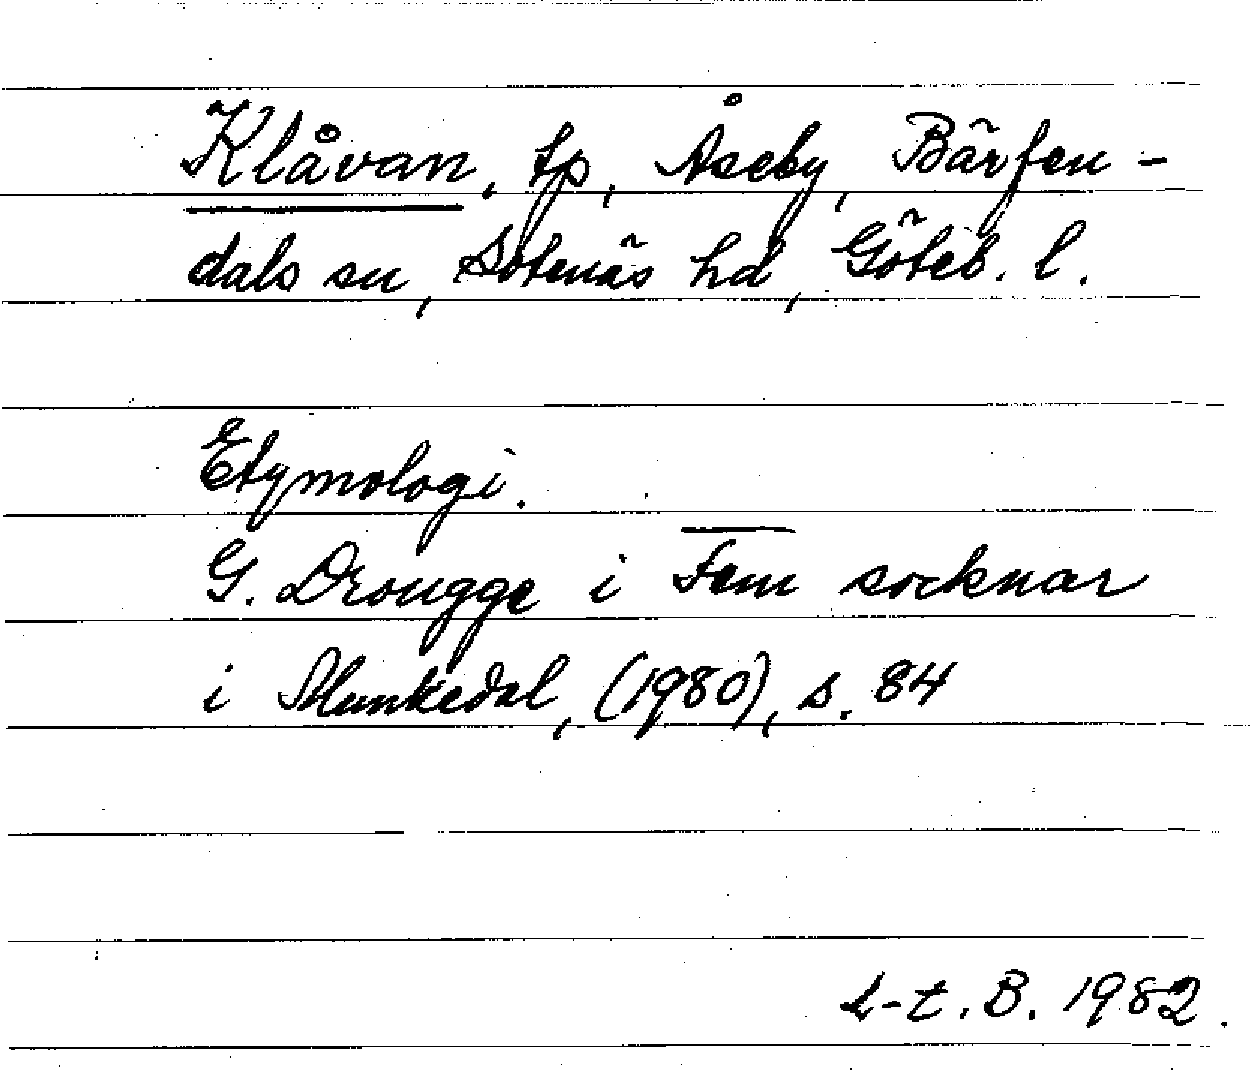 Klåvan, tp, Åseby, Bärfen-
dals sn, Sotenäs hd, Göteb. l.
Etymologi.
G. Drougge i Fem socknar
i Munkedal, (1980), s. 84
L-t. B. 1982.